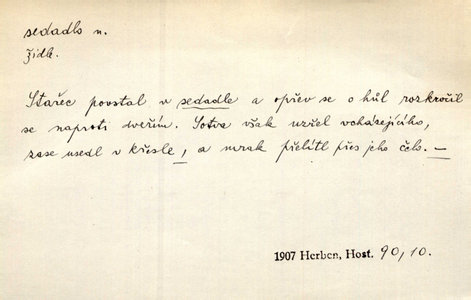 sedadlo n.
židle.
Stařec povstal v sedadle a opřev se o hůl rozkročil
se naproti dveřím. Sotva však uzřel vcházejícího,
zase usedl v křesle, a mrak přelétl přes jeho čelo. —
1907 Herben, Host. 90,10.